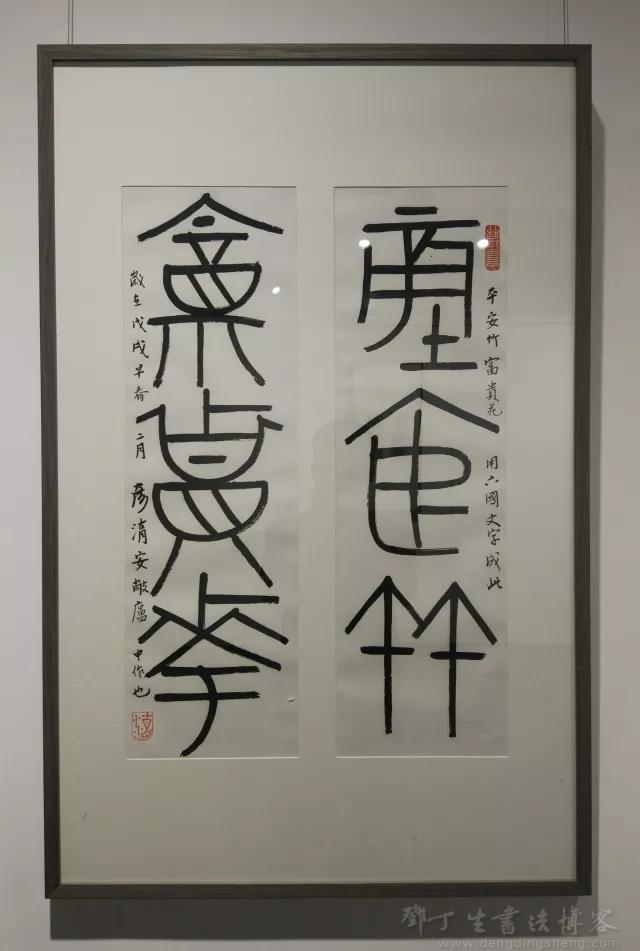 平安竹富貴花 用六國文字成此
平安竹
富貴花
歲在戊戌早春二月 彥清安敝廬中作也
鄧丁生書法博客
www.dengdingsheng.com